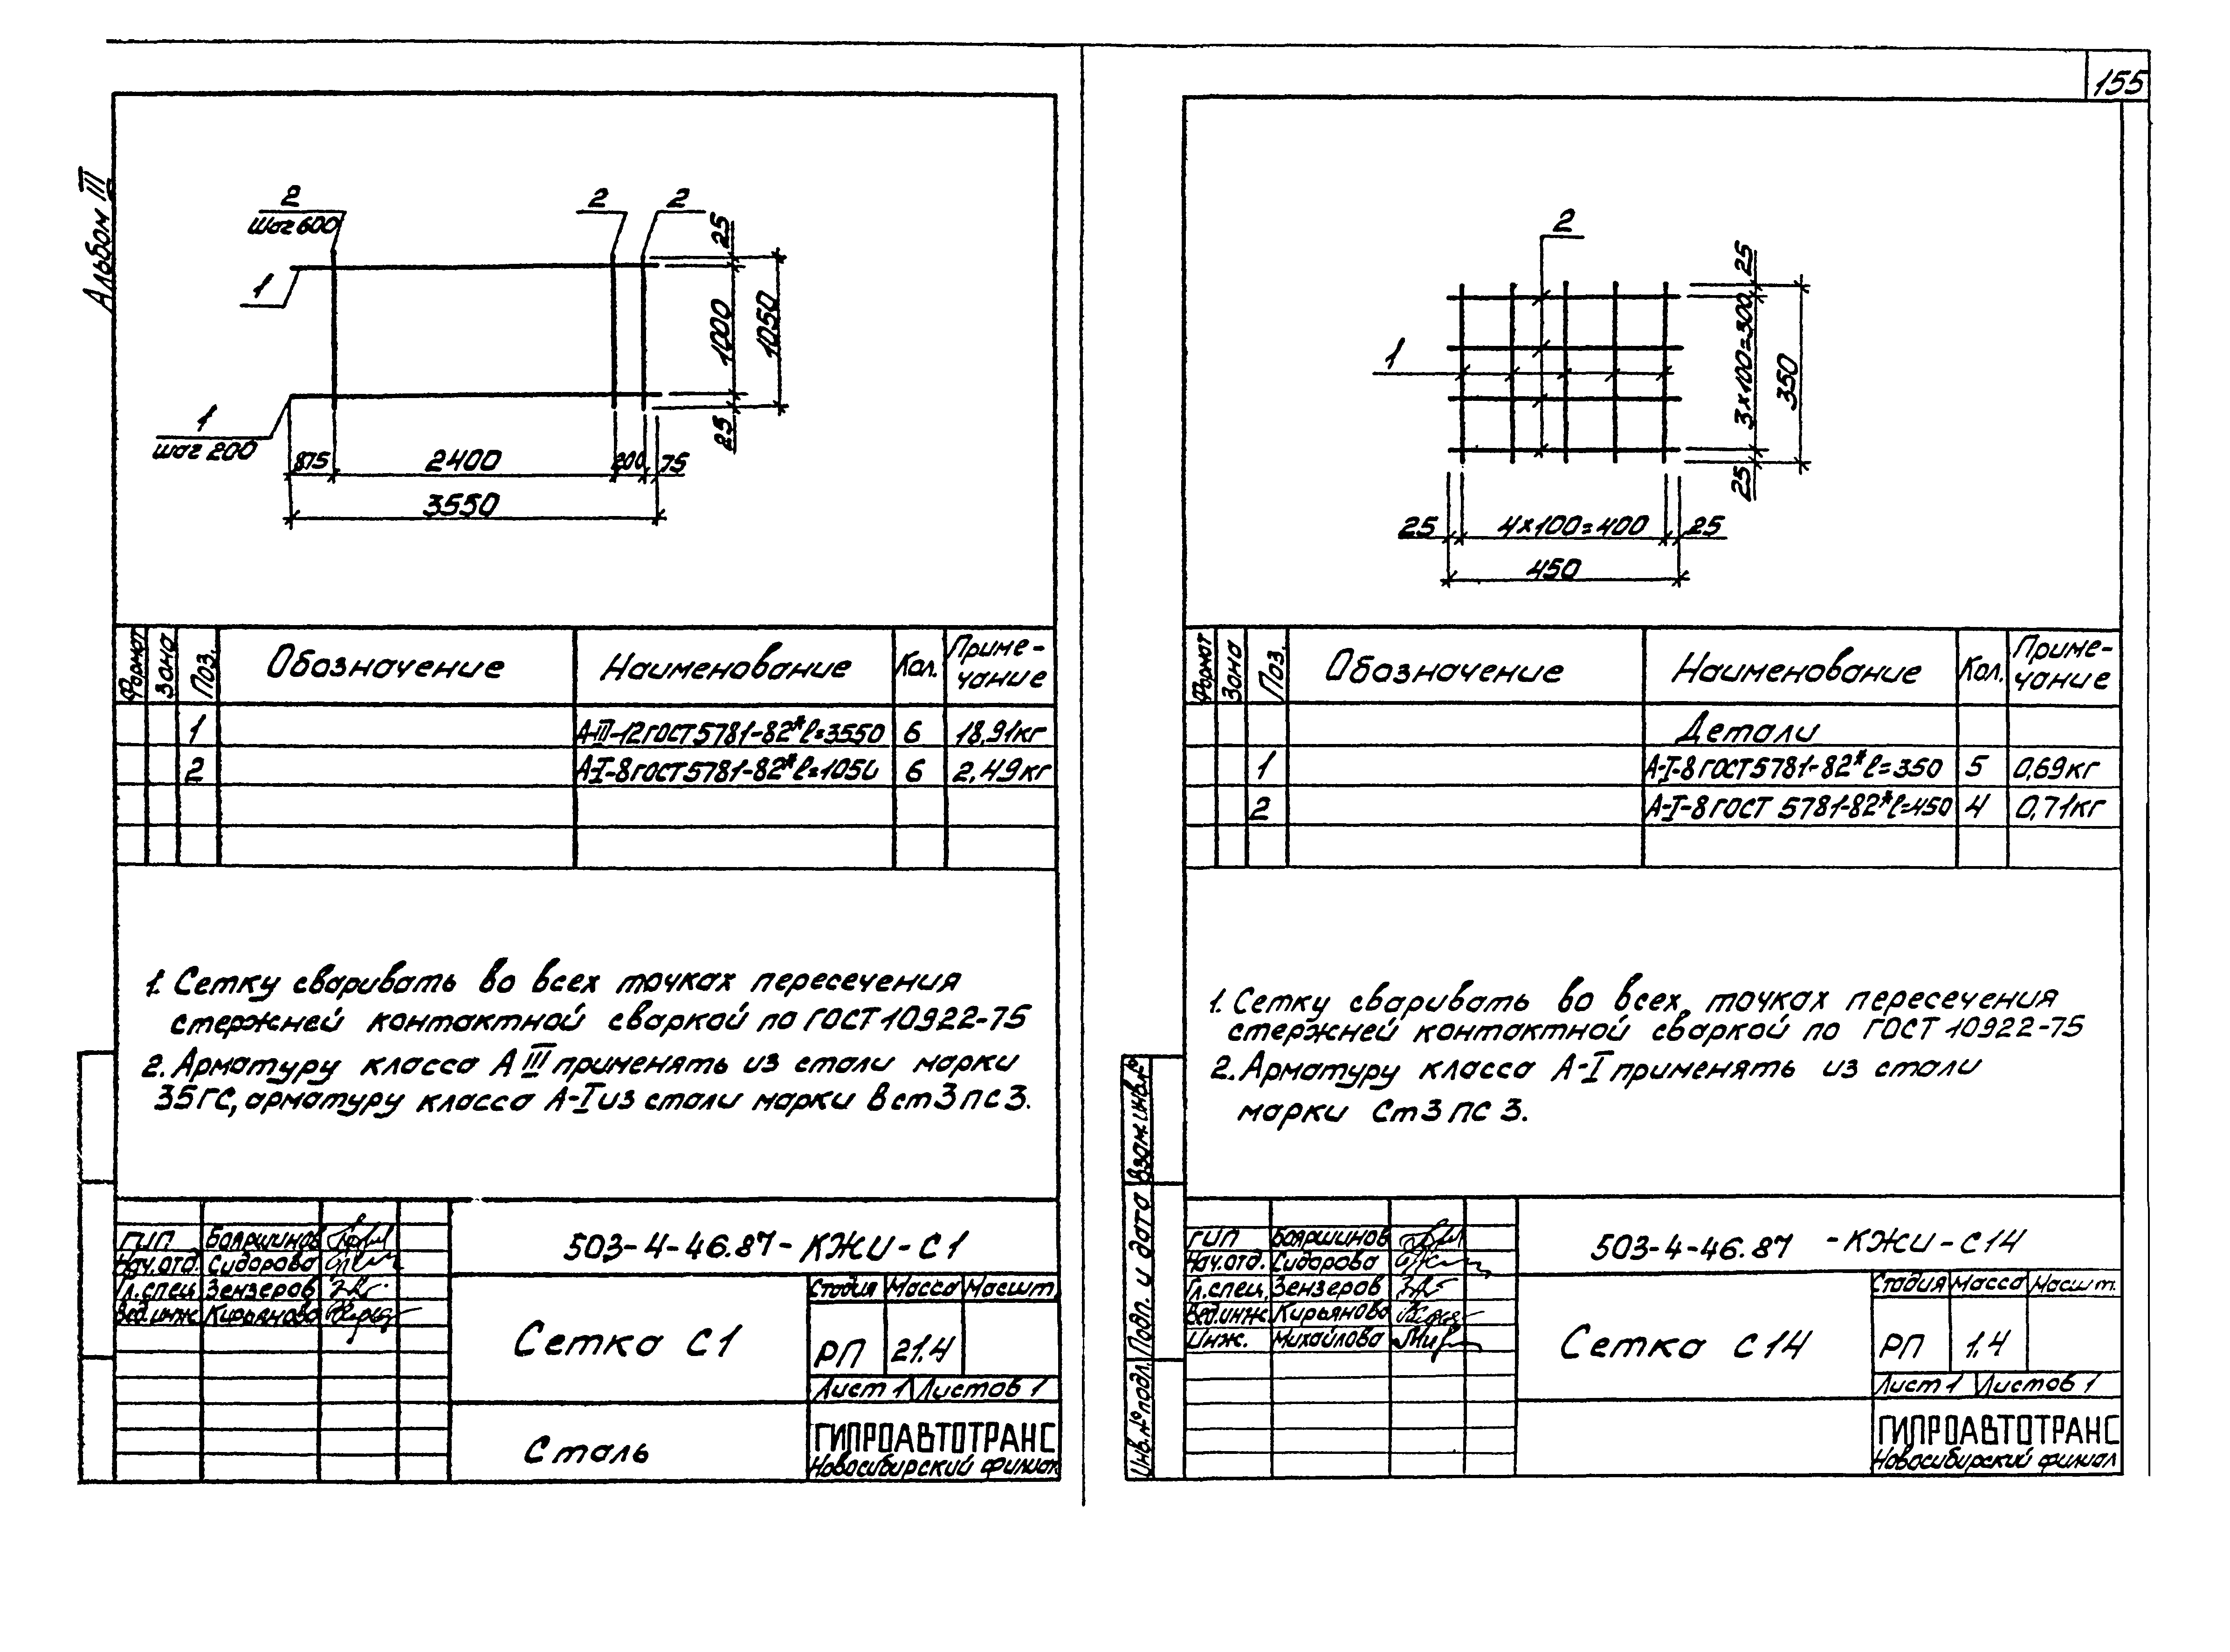 155
Альбом III
2
шаг 600
2
2
1
1
шаг 200
25
1000
1050
25
875
2400
200
75
3550
Формат
Зона
Поз.
Обозначение
Наименование
Кол.
Приме-
чание
1 А-III-12 ГОСТ 5781-82* ℓ=3550 6 18,91кг
2 А-I-8 ГОСТ 5781-82* ℓ=1050 6 2,49кг
1. Сетку сваривать во всех точках пересечения
стержней контактной сваркой по ГОСТ 10922-75
2. Арматуру класса А III применять из стали марки
35ГС, арматуру класса А-I из стали марки Вст3пс3.
ГИП Бояршинов
Нач.отд. Сидорова
Гл.спец. Зензеров
Вед.инж. Кирьянова
503-4-46.87-КЖИ-С1
Сетка С1
Стадия Масса Масшт.
РП 21.4
Лист 1 Листов 1
Сталь
ГИПРОАВТОТРАНС
Новосибирский филиал
2
1
25
3×100=300
350
25
25
4×100=400
25
450
Формат
Зона
Поз.
Обозначение
Наименование
Кол.
Приме-
чание
Детали
1 А-I-8 ГОСТ 5781-82* ℓ=350 5 0,69кг
2 А-I-8 ГОСТ 5781-82* ℓ=450 4 0,71кг
1. Сетку сваривать во всех точках пересечения
стержней контактной сваркой по ГОСТ 10922-75
2. Арматуру класса А-I применять из стали
марки Ст3пс3.
Взам.инв.№
Подп. и дата
Инв.№ подл.
ГИП Бояршинов
Нач.отд. Сидорова
Гл.спец. Зензеров
Вед.инж. Кирьянова
Инж. Михайлова
503-4-46.87 -КЖИ-С14
Сетка С14
Стадия Масса Масшт.
РП 1,4
Лист 1 Листов 1
ГИПРОАВТОТРАНС
Новосибирский филиал